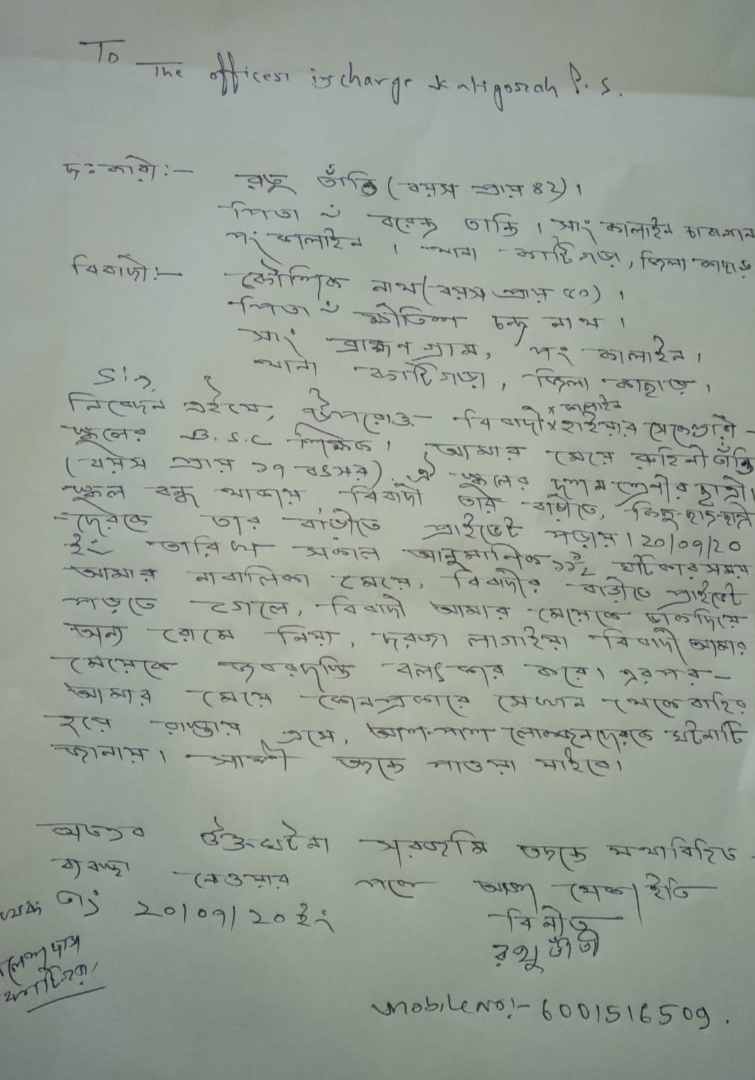 To
The officer incharge Katigorah P. S.
দঃকারী:- রঘু তাঁতি (বয়স প্রায় ৪২)।
পিতা ঃ তাতি। সাং কালাইন চাবাগান
পং কালাইন। থানা কাটিগড়া, জিলা কাছাড়
বিবাদী:- কৌশিক নাথ (বয়স প্রায় ৫০)।
পিতা ঃ ক্ষীতিশ চন্দ্র নাথ।
সাং ব্রাহ্মণ গ্রাম, পং কালাইন।
থানা কাটিগড়া, জিলা কাছাড়।
Sir,
নিবেদন এইযে, উপরোক্ত বিবাদী কালাইন হাইয়ার সেকেন্ডারী
স্কুলের B.S.C শিক্ষক। আমার মেয়ে তাঁতি
(বয়স প্রায় ১৭ বৎসর) ঐ স্কুলের দশম শ্রেণীর ছাত্রী।
স্কুল বন্ধ থাকায়, বিবাদী তার বাড়ীতে, কিছু ছাত্র-ছাত্রী
-দেরকে তার বাড়ীতে প্রাইভেট পড়ায়। 20/09/20
ইং তারিখ সকাল আনুমানিক ১১½ ঘটিকার সময়
আমার নাবালিকা মেয়ে, বিবাদীর বাড়ীতে প্রাইভেট
পড়তে গেলে, বিবাদী আমার মেয়েকে ডাকদিয়ে
অন্য রোমে নিয়া, দরজা লাগাইয়া বিবাদী আমার
মেয়েকে জবরদস্তি বলৎকার করে। এরপর-
আমার মেয়ে কোনপ্রকারে সেখান থেকে বাহির
হয়ে রাস্তায় এসে, আশ-পাশ লোকজনদেরকে ঘটনাটি
জানায়। সাক্ষী তদন্তে পাওয়া যাইবে।
অতএব উক্ত ঘটনা সরজমি তদন্তে যথাবিহিত
ব্যবস্থা নেওয়ার পক্ষে আজ্ঞা হোক। ইতি
তাং 20/09/20 ইং বিনীত
রঘু তাঁতী
Mobile No:- 6001516509.